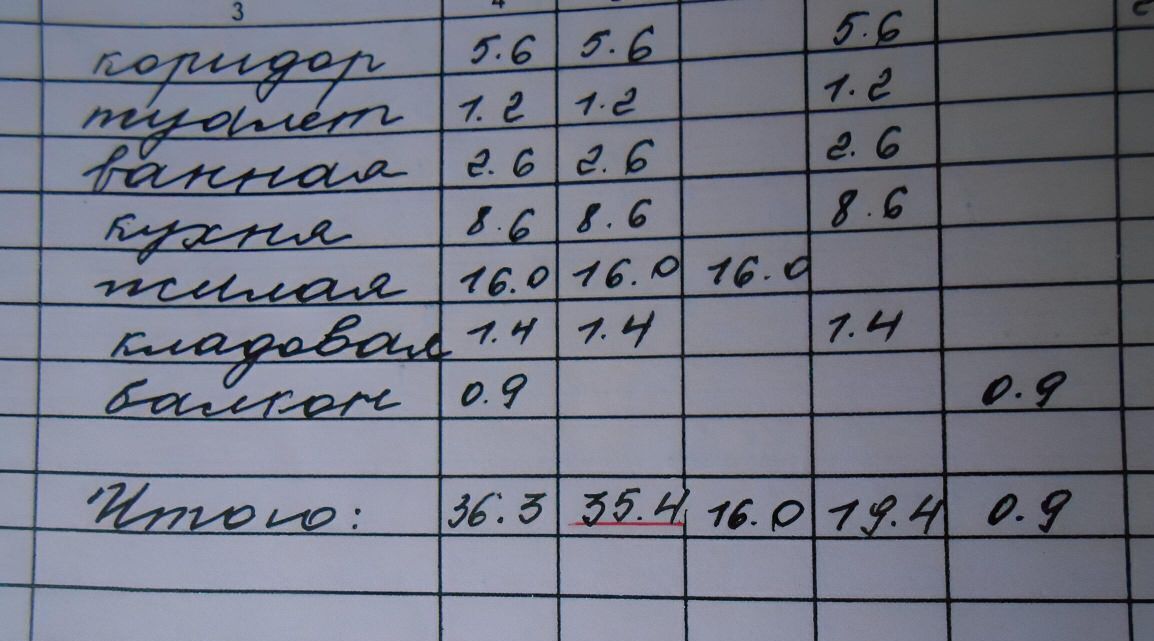 3 4
коридор 5.6 5.6 5.6
туалет 1.2 1.2 1.2
ванная 2.6 2.6 2.6
кухня 8.6 8.6 8.6
жилая 16.0 16.0 16.0
кладовая 1.4 1.4 1.4
балкон 0.9 0.9
Итого: 36.3 35.4 16.0 19.4 0.9